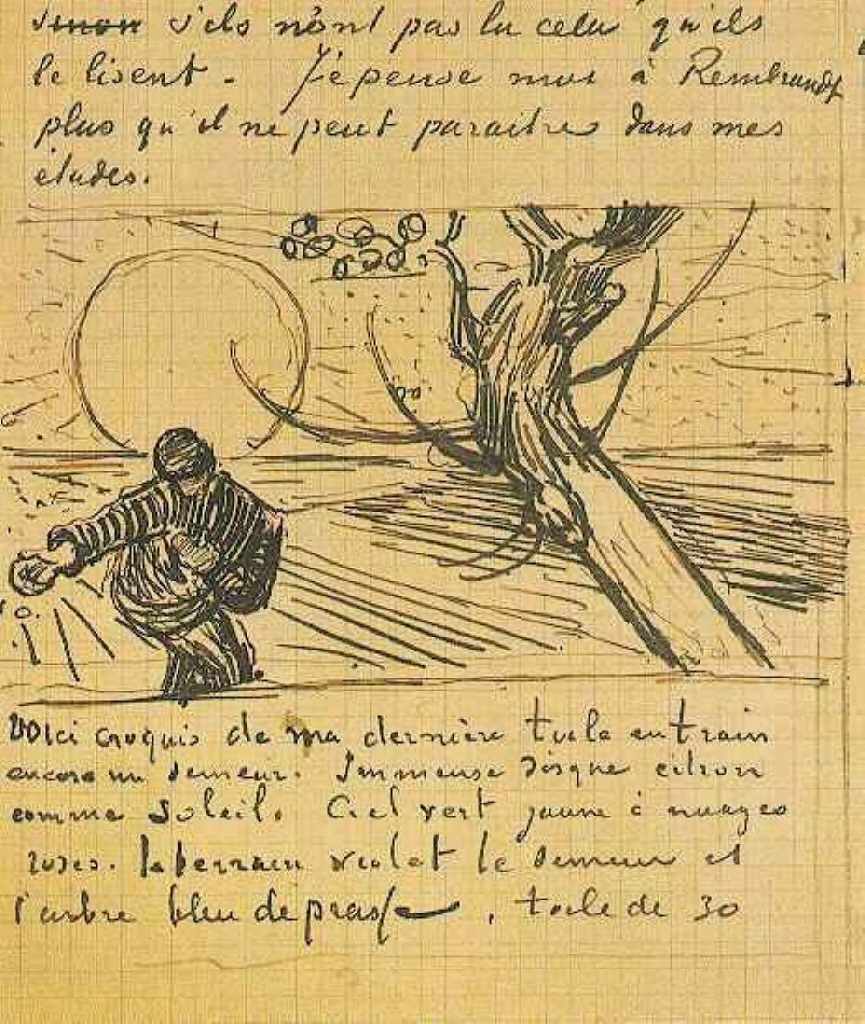 sinon s'ils n'ont pas lu cela qu'ils
le lisent. J'y pense moi à Rembrandt
plus qu'il ne peut paraitre dans mes
études.
Voici croquis de ma dernière toile en train
encore un semeur. Immense disque citron
comme soleil. Ciel vert jaune à nuages
roses. le terrain violet le semeur et
l'arbre bleu de prusse. toile de 30